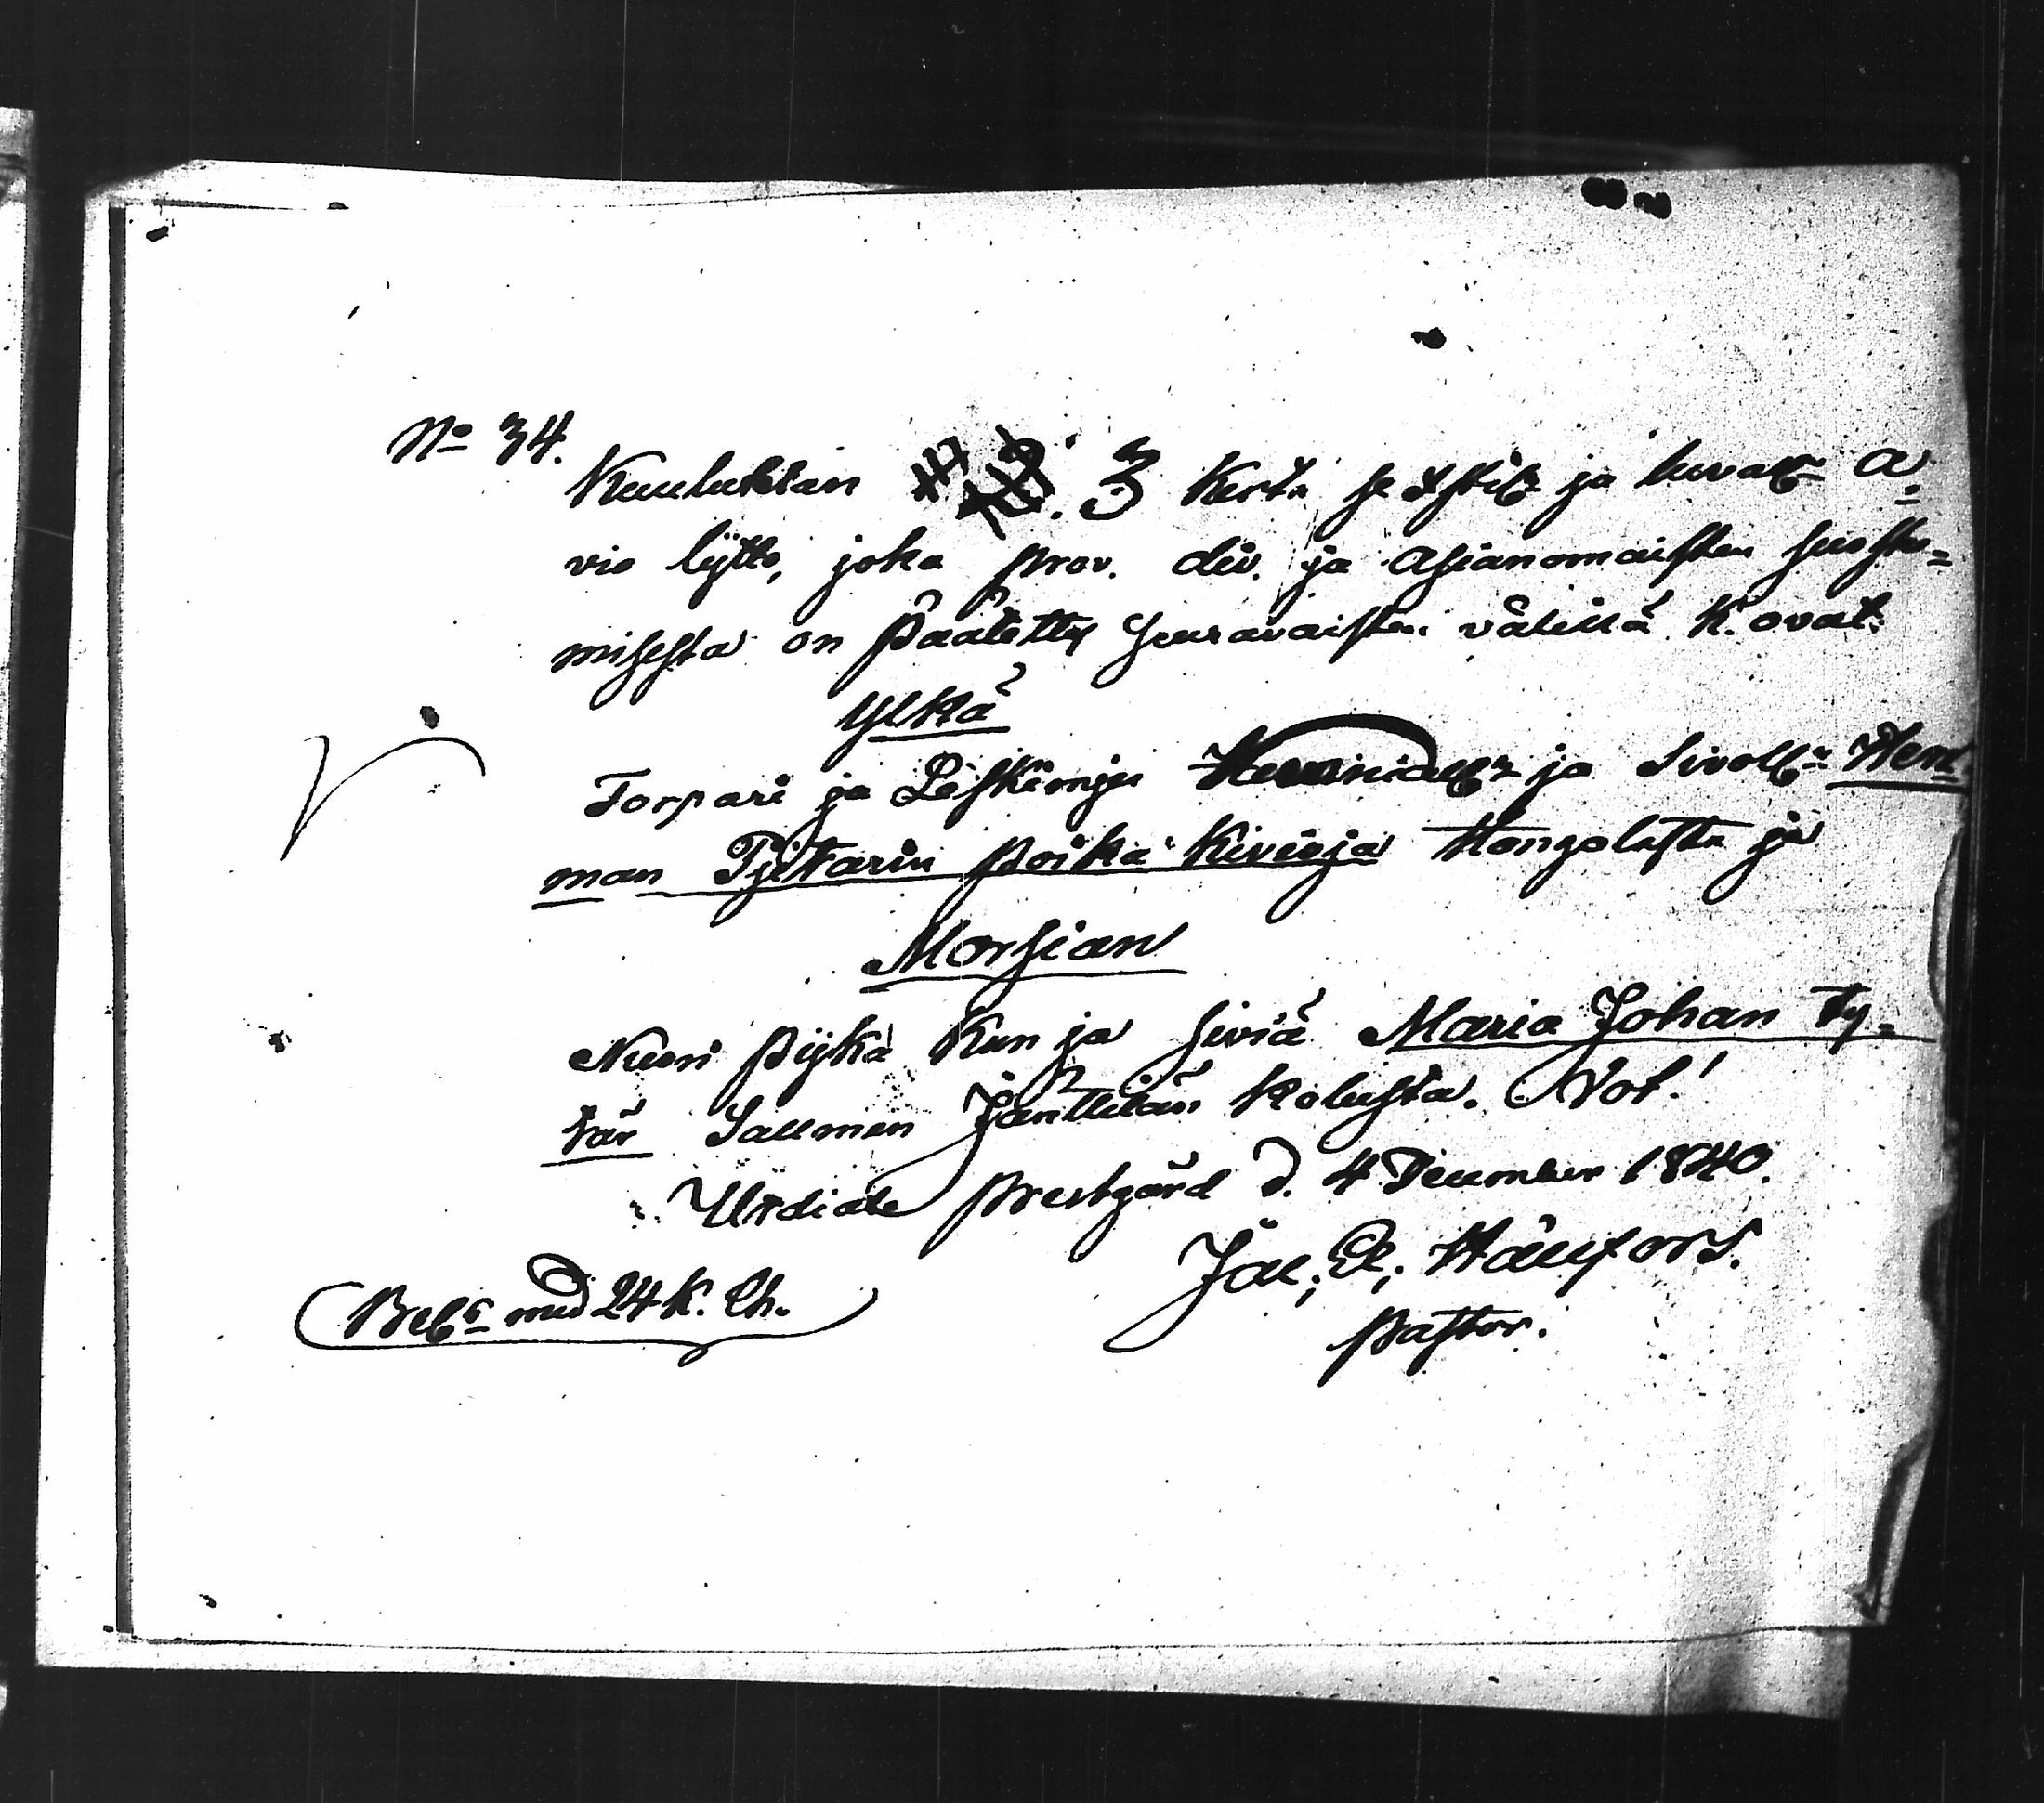 No 34.
Kuulutetan 3 Kerta ja luvall. a=
vio lijtto, joka prov. div. ja asianomaisten suostu=
misesta on päätetty seuravaisten välillä k. ovat:
Ylkä
Torpari ja Leskimjes ja Sivoll. Her=
man Pjetarin poika Kivioja Hongolasta ja
Morsian
Nuori pijka Kun ja siviä Maria Johan ty=
tär Saumen Jänttilän Kylästä. Not!
Urdiala prestgård d. 4 December 1840.
Jac. E. Hällfors.
pastor.
med 24 K.